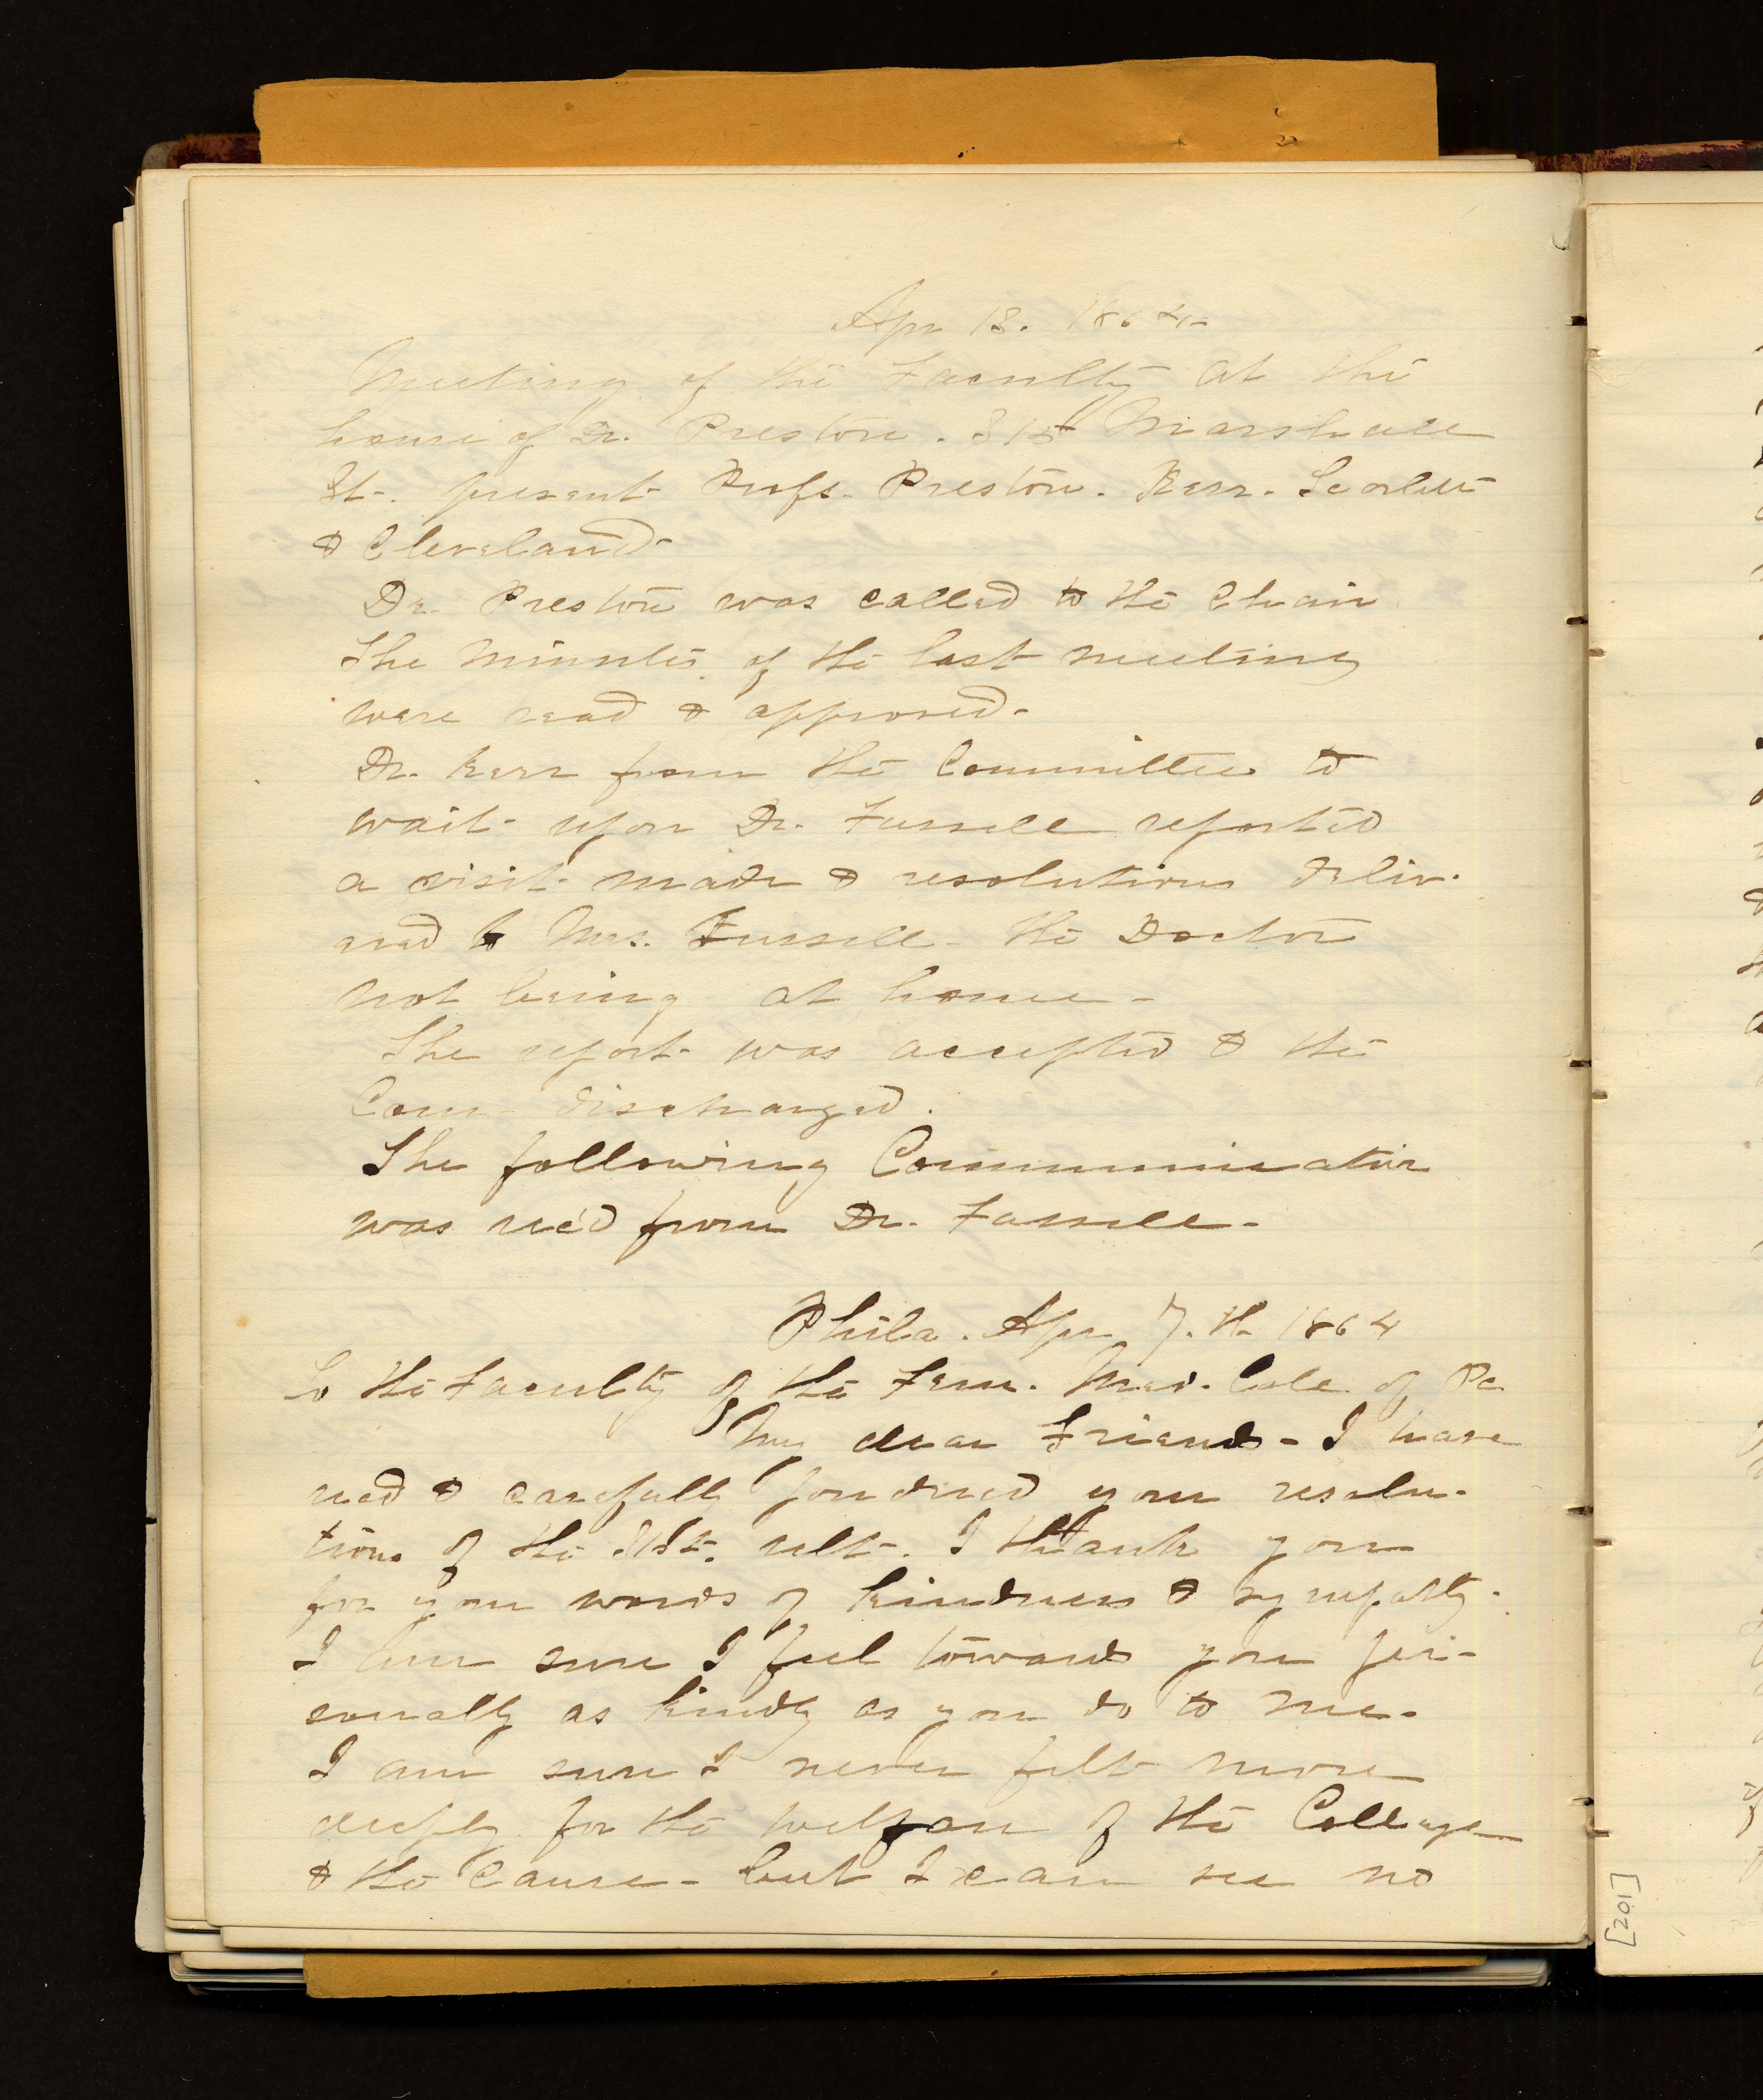 Apr 13. 1864-
Meeting of the Faculty at the
house of Dr. Preston. 315 Marshall
St-. present Profs. Preston. Kerr. Scarlett
& Cleveland-
Dr. Preston was called to the Chair
The Minutes of the last meeting
were read & approved-
Dr. Kerr from the Committee to
wait upon Dr. Fussell reported
a visit made & resolutions deliv-
ered to Mrs. Fussell - the Doctor
not being at home-
The report was accepted & the
Com- discharged.
The following Communication
was rec'd from Dr. Fussell-
Phila. Apr 7.th 1864
To the Faculty of the Fem. Med. Coll. of Pa
My dear Friends - I have
rec'd & carefully pondered your resolu-
tions of the 31st. ult-. I thank you
for your words of kindness & sympathy.
I am sure I feel towards you per-
sonally as kindly as you do to me.
I am sure I never felt more
deeply for the welfare of the College
& the Cause - but I can see no
[201]